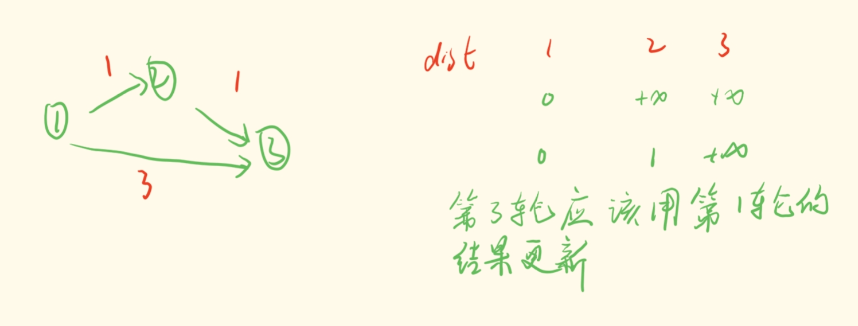 1
1
②
①
③
3
dist 1 2 3
0 +∞ +∞
0 1 +∞
第3轮应该用第1轮的
结果更新